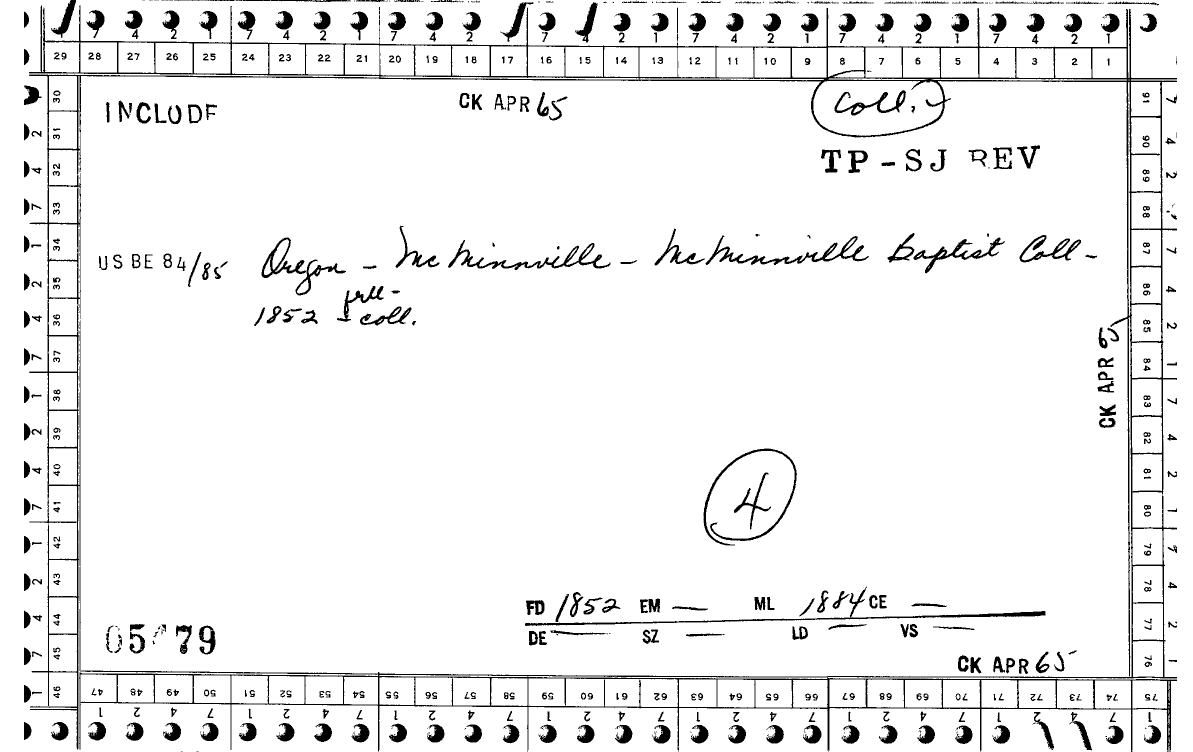 7 4 2 1 7 4 2 1 7 4 2 1 7 4 2 1 7 4 2 1 7 4 2 1 7 4 2 1
29 28 27 26 25 24 23 22 21 20 19 18 17 16 15 14 13 12 11 10 9 8 7 6 5 4 3 2 1
INCLUDE CK APR 65 Coll.
TP - SJ REV
US BE 84/85 Oregon - McMinnville - McMinnville Baptist Coll -
1852 - coll.
CK APR 65
4
FD 1852 EM — ML 1884 CE —
DE — SZ — LD — VS —
79
CK APR 65
30 31 32 33 34 35 36 37 38 39 40 41 42 43 44 45 46
91 90 89 88 87 86 85 84 83 82 81 80 79 78 77 76
47 48 49 50 51 52 53 54 55 56 57 58 59 60 61 62 63 64 65 66 67 68 69 70 71 72 73 74 75
1 2 4 7 1 2 4 7 1 2 4 7 1 2 4 7 1 2 4 7 1 2 4 7 1 2 4 7 1